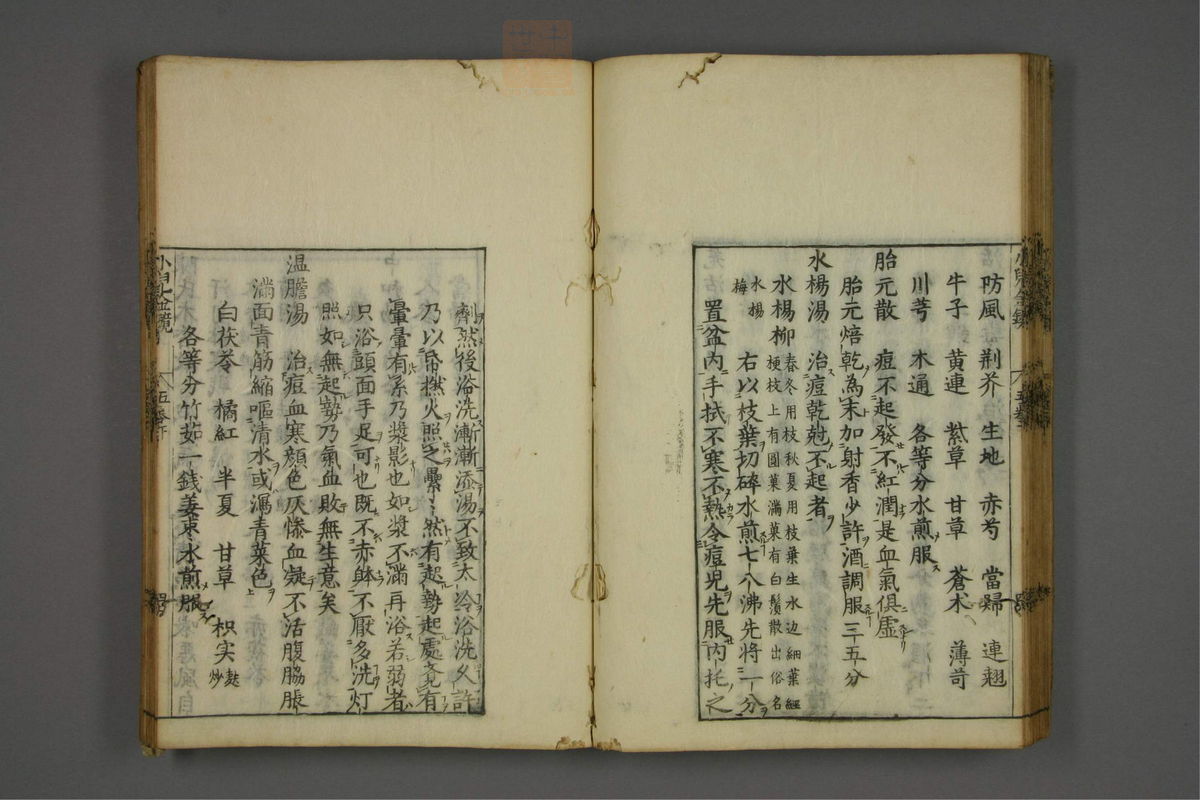 防風 荆芥 生地 赤芍 當歸 連翹
牛子 黄連 紫草 甘草 蒼朮 薄苛
川芎 木通 各等分水煎服
胎元散 痘不起發不紅潤是血氣俱虛
胎元焙乾為末加射香少許酒調服三五分
水楊湯 治痘乾尅不起者
水楊柳 春冬用枝秋夏用枝葉生水边細葉經
梗枝上有圓菓滿菓有白鬚散出俗名
水楊
梅
右以枝葉切碎水煎七八沸先將一分
置盆内手拭不寒不熱令痘児先服内托之
劑然後浴洗漸漸添湯不致太冷浴洗久許
乃以帋撚火照之纍〻然有起勢起處竟有
暈暈有系乃漿影也如漿不滿再浴若弱者
只浴頭面手足可也既不赤躰不厭多洗灯
照如無起勢乃氣血敗無生意矣
温膽湯 治痘血寒顔色灰惨血凝不活腹脇脹
滿面青筋縮嘔清水或瀉青菜色
白茯苓 橘紅 半夏 甘草 枳実 麸
炒
各等分竹茹一錢姜棗水煎服